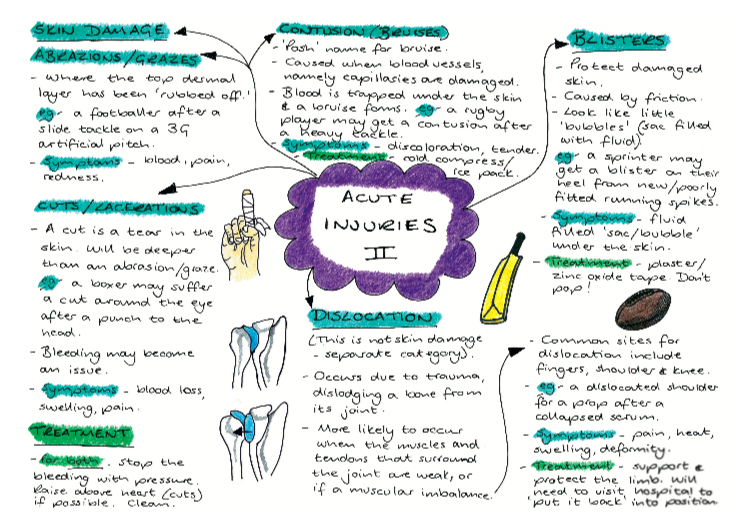 SKIN DAMAGE
ABRAZIONS/GRAZES
- Where the top dermal
layer has been 'rubbed off.'
eg - a footballer after a
slide tackle on a 3G
artificial pitch.
- Symptoms - blood, pain,
redness.
CUTS/LACERATIONS
- A cut is a tear in the
skin. Will be deeper
than an abrasion/graze.
eg - a boxer may suffer
a cut around the eye
after a punch to the
head.
- Bleeding may become
an issue.
- Symptoms - blood loss,
swelling, pain.
TREATMENT
- for both. Stop the
bleeding with pressure.
Raise above heart (cuts)
if possible. Clean.
CONTUSION (BRUISES)
- 'Posh' name for bruise.
- Caused when blood vessels,
namely capillasies are damaged.
- Blood is trapped under the skin
& a bruise forms. eg - a rugby
player may get a contusion after
a heavy tackle.
- Symptoms - discoloration, tender.
- Treatment - cold compress/
ice pack.
ACUTE
INJURIES
II
DISLOCATION
(This is not skin damage
- separate category).
- Occurs due to trauma,
dislodging a bone from
its joint.
- More likely to occur
when the muscles and
tendons that surround
the joint are weak, or
if a muscular imbalance.
BLISTERS
- Protect damaged
skin.
- Caused by friction.
- Look like little
'bubbles' (sac filled
with fluid).
eg - a sprinter may
get a blister on their
heel from new/poorly
fitted running spikes.
- Symptoms - fluid
filled 'sac/bubble'
under the skin.
- Treatment - plaster/
zinc oxide tape. Don't
pop!
- Common sites for
dislocation include
fingers, shoulder & knee.
- eg - a dislocated shoulder
for a prop after a
collapsed scrum.
- Symptoms - pain, heat,
swelling, deformity.
- Treatment - support &
protect the limb. Will
need to visit hospital to
'put it back' into position.